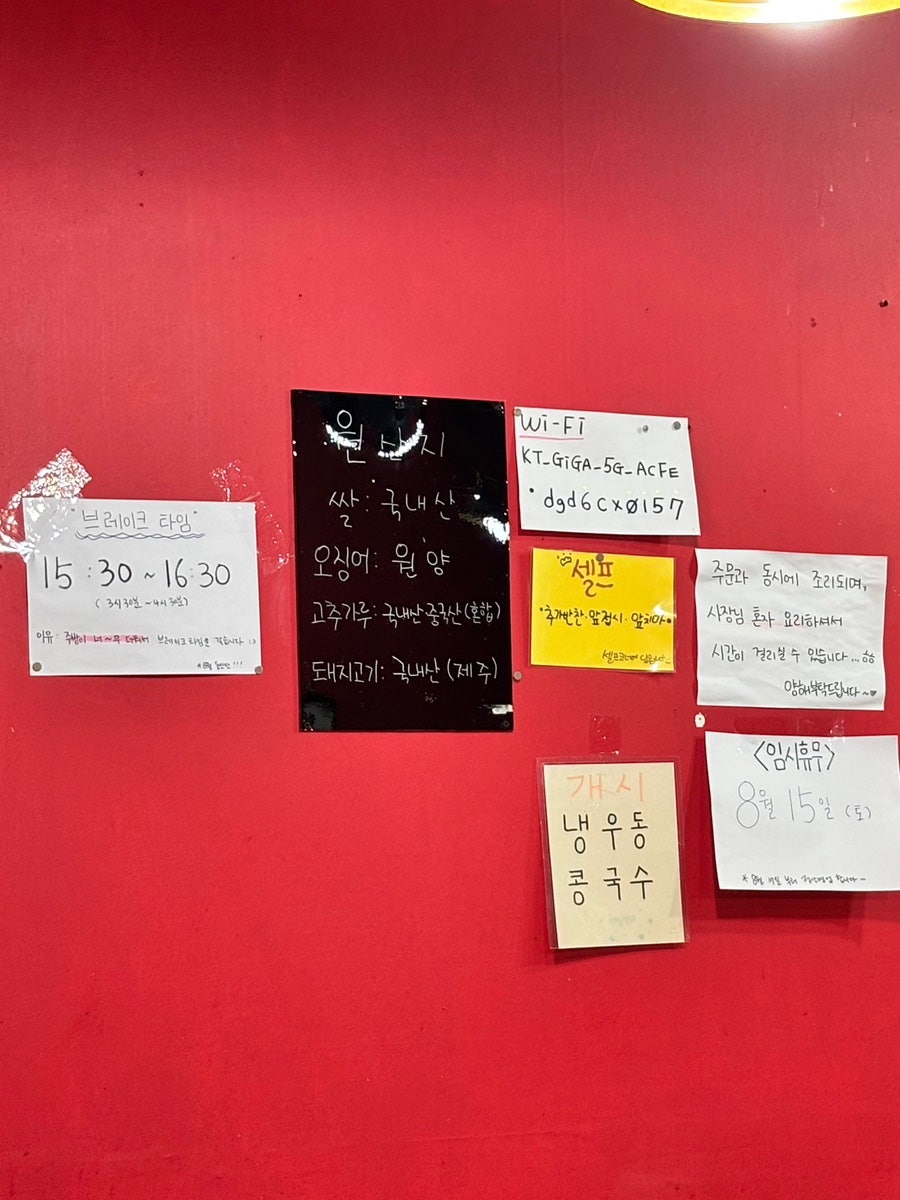 브레이크 타임
15:30~16:30
(3시30분~4시30분)
이유: 주방이 너~무 더워서 브레이크타임을 갖습니다 :)
원산지
쌀: 국내산
오징어: 원양
고추가루: 국내산 중국산(혼합)
돼지고기: 국내산(제주)
Wi-Fi
KT_GiGA_5G_ACFE
dgd6cxø157
셀프
추가반찬·앞접시·앞치마
셀프코너에 있습니다
주문과 동시에 조리되며,
사장님 혼자 요리하셔서
시간이 걸리실 수 있습니다...
양해부탁드립니다~♡
개시
냉우동
콩국수
<임시휴무>
8월 15일 (토)